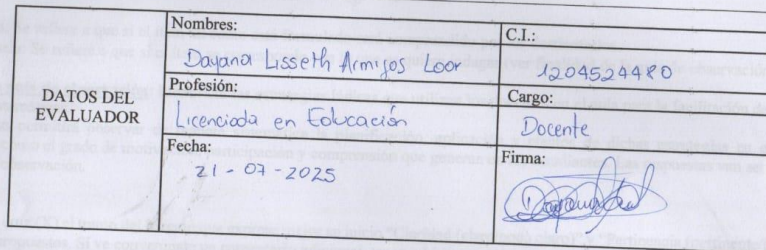 DATOS DEL
EVALUADOR
Nombres:
Dayana Lisseth Armijos Loor
C.I.:
1204524480
Profesión:
Licenciada en Educación
Cargo:
Docente
Fecha:
21-07-2025
Firma: